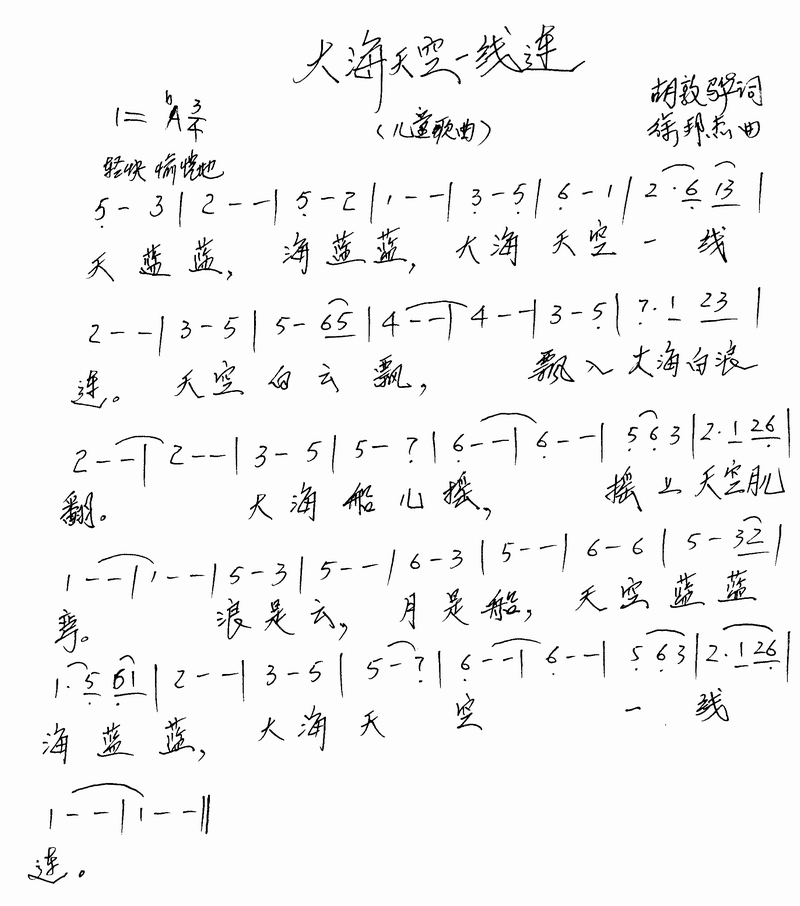 大海天空一线连
1=ᵇA 3/4
(儿童歌曲)
胡敦骅词
徐邦杰曲
轻快 愉悦地
5 - 3 | 2 - - | 5 - 2 | 1 - - | 3 - 5 | 6 - 1 | 2 · 6 13 |
天 蓝 蓝, 海 蓝 蓝, 大 海 天 空 一 线
2 - - | 3 - 5 | 5 - 65 | 4 - - | 4 - - | 3 - 5 | 7 · 1 23 |
连。 天 空 白 云 飘, 飘 入 大 海 白 浪
2 - - | 2 - - | 3 - 5 | 5 - 7 | 6 - - | 6 - - | 5 6 3 | 2 · 1 26 |
翻。 大 海 船 儿 摇, 摇 上 天 空 月儿
1 - - | 1 - - | 5 - 3 | 5 - - | 6 - 3 | 5 - - | 6 - 6 | 5 - 32 |
弯。 浪 是 云, 月 是 船, 天 空 蓝 蓝
1 · 5 61 | 2 - - | 3 - 5 | 5 - 7 | 6 - - | 6 - - | 5 6 3 | 2 · 1 26 |
海 蓝 蓝, 大 海 天 空 一 线
1 - - | 1 - - ||
连。